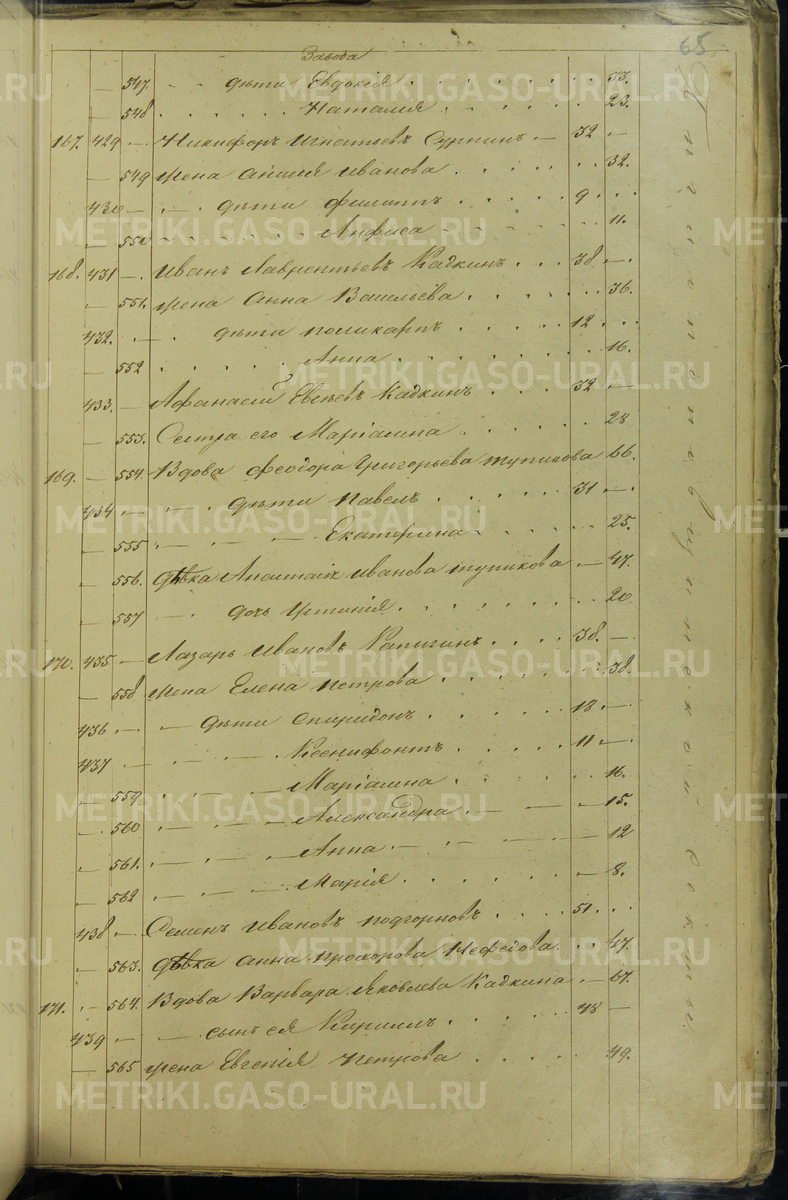 65
Завода
— 547. — дѣти Евдокія 33.
— 548 Наталія 23.
167. 429 — Никифоръ Игнатьевъ Суринъ — 32 —
— 549 жена Анисья Иванова 32.
430 — — дѣти Филиппъ 9
— 550 Анфиса 11.
168. 431 — Иванъ Лаврентьевъ Кадкинъ 38 —
— 551. жена Анна Васильева 36.
432. — дѣти Поликарпъ 12
— 552 Анна 16.
433. — Афанасій Евсѣевъ Кадкинъ 32 —
— 553. Сестра его Маріамна 28
169. — 554. Вдова Феодора Григорьева Тупикова 66.
434 — — дѣти Павелъ 31 —
— 555 — Екатерина 25.
— 556. Дѣвка Анастасія Иванова Тупикова — 47.
— 557 — дочь 20
170. 435 — Лазарь Ивановъ 38. —
— 558 жена Елена Петрова 38.
436 — — дѣти Спиридонъ 18 —
437 — Ксенифонтъ 11 —
— 559 Маріамна 16.
— 560 — Александра — 15.
— 561. — Анна — 12
— 562 — Марія — 8.
438 — Семенъ Ивановъ Подгорновъ 51.
— 563. Дѣвка Анна Прохорова Нефедова 47.
171. — 564. Вдова Варвара Яковлева Кадкина — 67.
439 — — сынъ ея Кирилъ 48 —
— 565 жена Евгенія Петрова 49.
METRIKI.GASO-URAL.RU